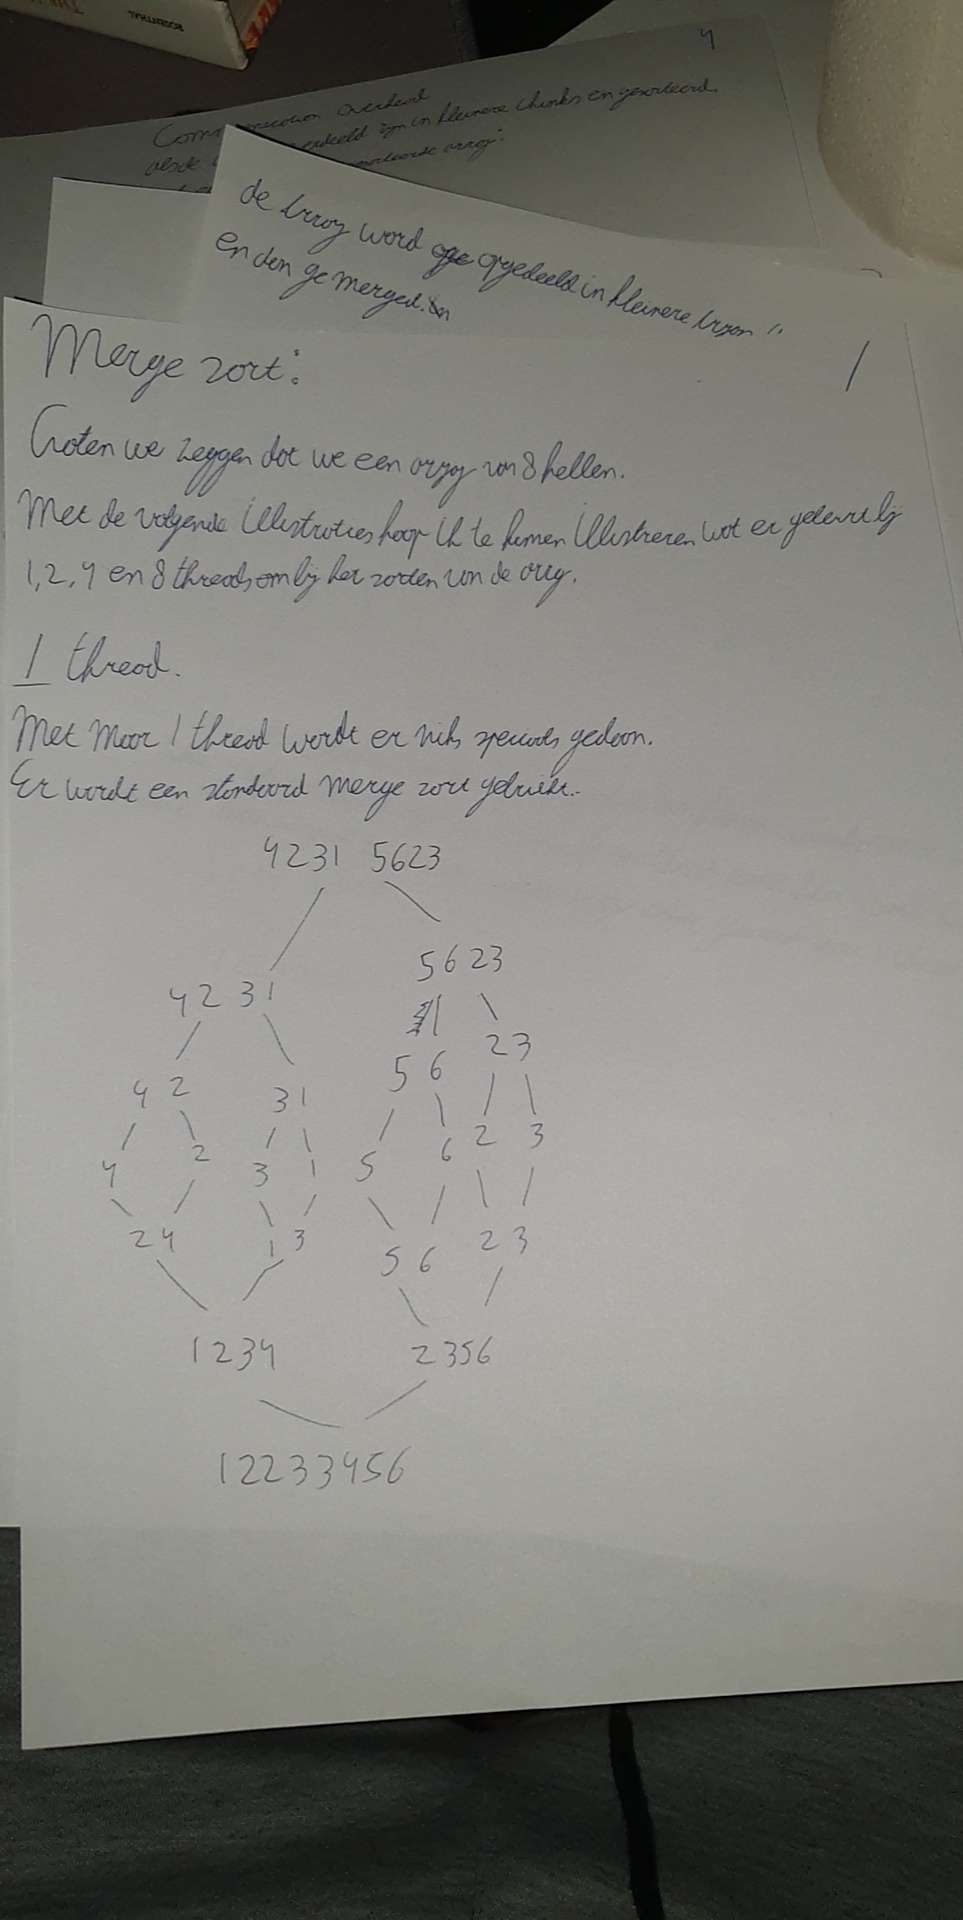 ROSENTHAL
4
overhead
in kleinere chunks en gesorteerd
array:
de array word opgedeeld in kleinere
en dan gemerged.
1
Merge zort:
Laten we zeggen dat we een array van 8 hebben.
Met de volgende illustraties hoop ik te kunnen illustreren wat er gebeurt bij
1, 2, 4 en 8 threads om bij het zorten van de array.
1 thread.
Met maar 1 thread wordt er niks speciaals gedaan.
Er wordt een standaard merge zort gebruikt.
4231 5623
5623
4231
23
56
42 31
2 3
6
2
4 3 1 5
24 13 56 23
1234 2356
12233456